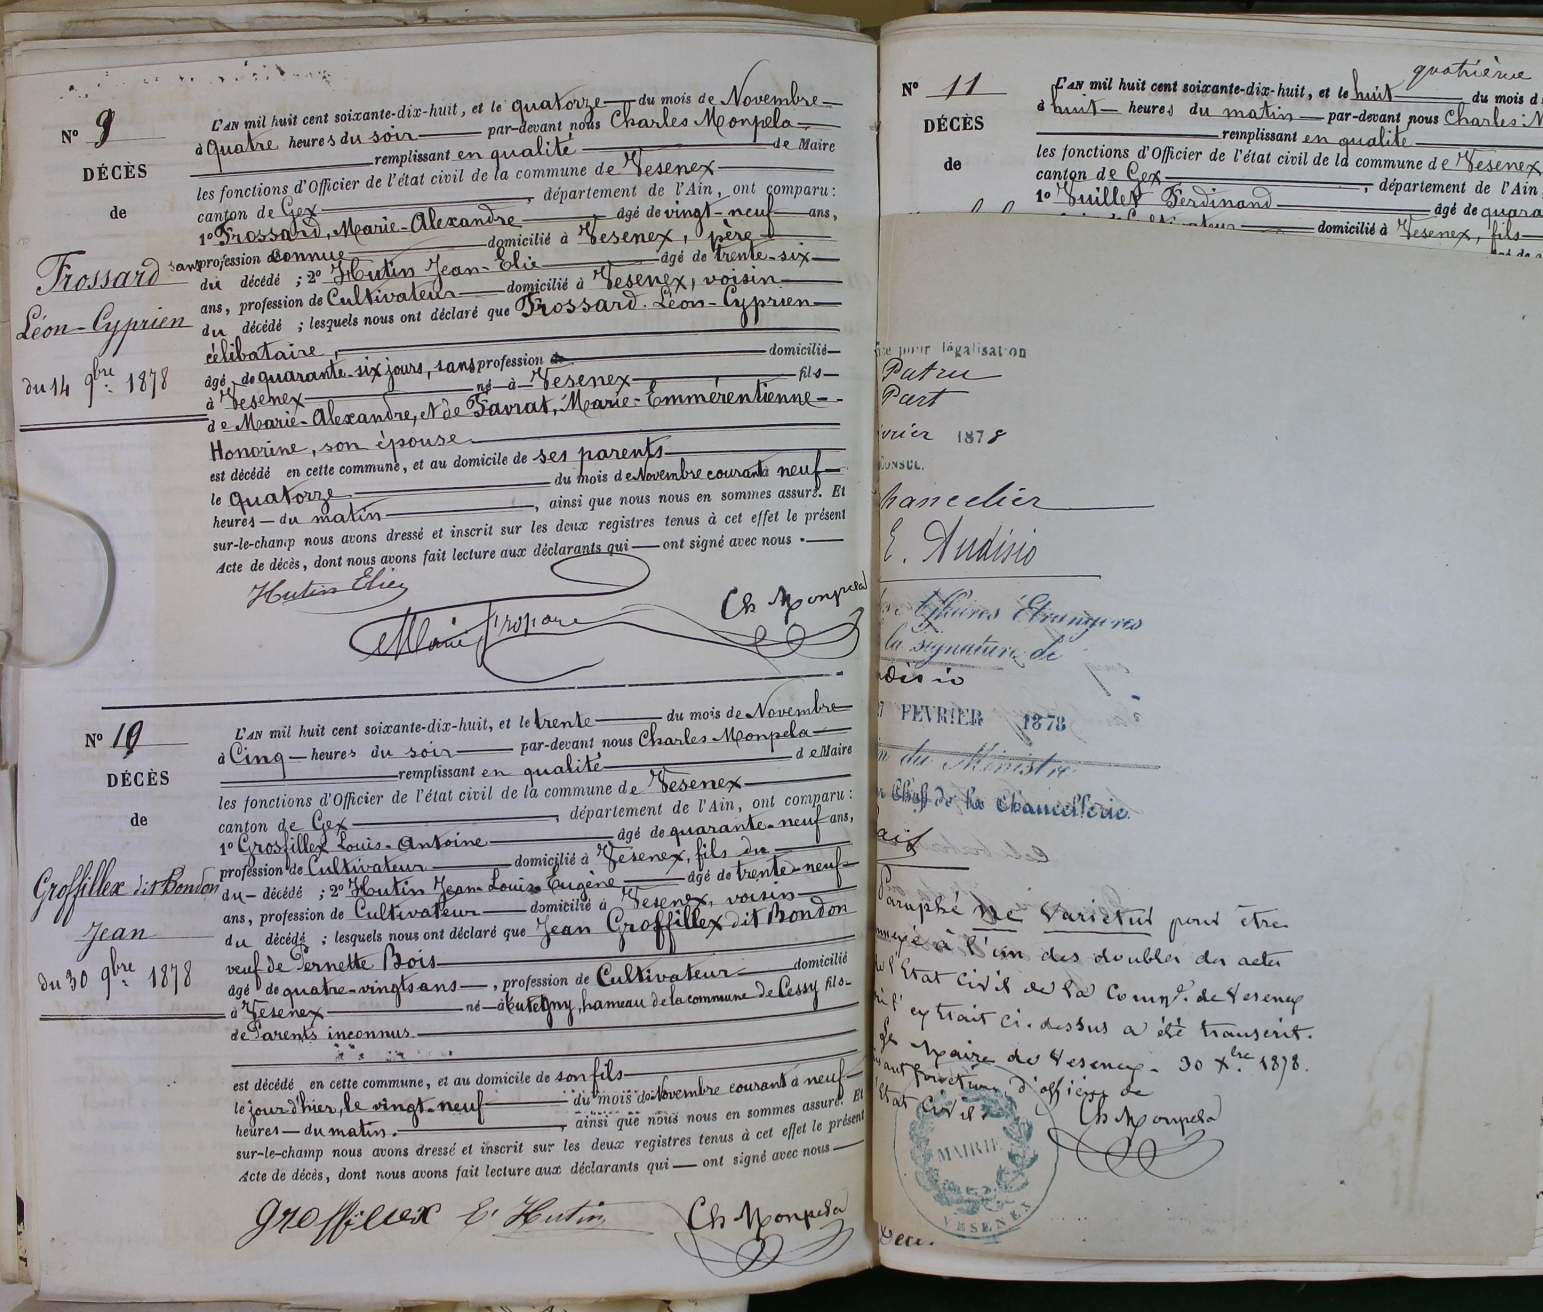 N° 9
DÉCÈS
de
Frossard
Léon-Cyprien
du 14 9bre 1878
L'AN mil huit cent soixante-dix-huit, et le quatorze du mois de Novembre
à quatre heures du soir par-devant nous Charles Monpela
remplissant en qualité de Maire
les fonctions d'Officier de l'état civil de la commune de Vesenex
canton de Gex, département de l'Ain, ont comparu :
1° Frossard, Marie-Alexandre âgé de vingt-neuf ans,
sans profession connue domicilié à Vesenex, père
du décédé ; 2° Hutin Jean-Elie âgé de trente-six
ans, profession de Cultivateur domicilié à Vesenex, voisin
du décédé ; lesquels nous ont déclaré que Frossard Léon-Cyprien
célibataire,
âgé de quarante-six jours, sans profession domicilié
à Vesenex né à Vesenex fils
de Marie-Alexandre, et de Favrat, Marie-Emmérentienne-
Honorine, son épouse
est décédé en cette commune, et au domicile de ses parents
le quatorze du mois de Novembre courant à neuf
heures du matin, ainsi que nous nous en sommes assuré. Et
sur-le-champ nous avons dressé et inscrit sur les deux registres tenus à cet effet le présent
Acte de décès, dont nous avons fait lecture aux déclarants qui ont signé avec nous.
Hutin Elie
Ch Monpela
N° 10
DÉCÈS
de
Groffillex dit Bondon
Jean
du 30 9bre 1878
L'AN mil huit cent soixante-dix-huit, et le trente du mois de Novembre
à Cinq heures du soir par-devant nous Charles Monpela
remplissant en qualité de Maire
les fonctions d'Officier de l'état civil de la commune de Vesenex
canton de Gex, département de l'Ain, ont comparu :
1° Grosfillex Louis-Antoine âgé de quarante-neuf ans,
profession de Cultivateur domicilié à Vesenex, fils du
du décédé ; 2° Hutin Jean-Louis-Eugène âgé de trente-neuf
ans, profession de Cultivateur domicilié à Vesenex, voisin
du décédé ; lesquels nous ont déclaré que Jean Groffillex dit Bondon
veuf de Pernette Bois
âgé de quatre-vingts ans, profession de Cultivateur domicilié
à Vesenex né à Tutegny, hameau de la commune de Cessy fils
de Parents inconnus
est décédé en cette commune, et au domicile de son fils
le jour d'hier, le vingt-neuf du mois de Novembre courant à neuf
heures du matin, ainsi que nous nous en sommes assuré. Et
sur-le-champ nous avons dressé et inscrit sur les deux registres tenus à cet effet le présent
Acte de décès, dont nous avons fait lecture aux déclarants qui ont signé avec nous
Groffillex E. Hutin Ch Monpela
quatrième
N° 11
DÉCÈS
de
L'AN mil huit cent soixante-dix-huit, et le huit du mois d
à huit heures du matin par-devant nous Charles M
remplissant en qualité
les fonctions d'Officier de l'état civil de la commune de Vesenex
canton de Gex, département de l'Ain
1° Vuillet Ferdinand âgé de quara
domicilié à Vesenex, fils
pour légalisation
Patru
Part
vrier 1878
CONSUL,
hancelier
E. Audisio
Affaires Etrangeres
la signature de
disio
7 FEVRIER 1878
du Ministre
Chef de la Chancellerie
Paraphé ne varietur pour être
nnexé à l'un des doubles des actes
l'Etat civil de la Comne de Vesenex
l'extrait ci-dessus a été transcrit.
Le Maire de Vesenex 30 Xbre 1878.
sant fonction d'officier de
l'Etat Civil
Ch Monpela
MAIRIE
VESENEX